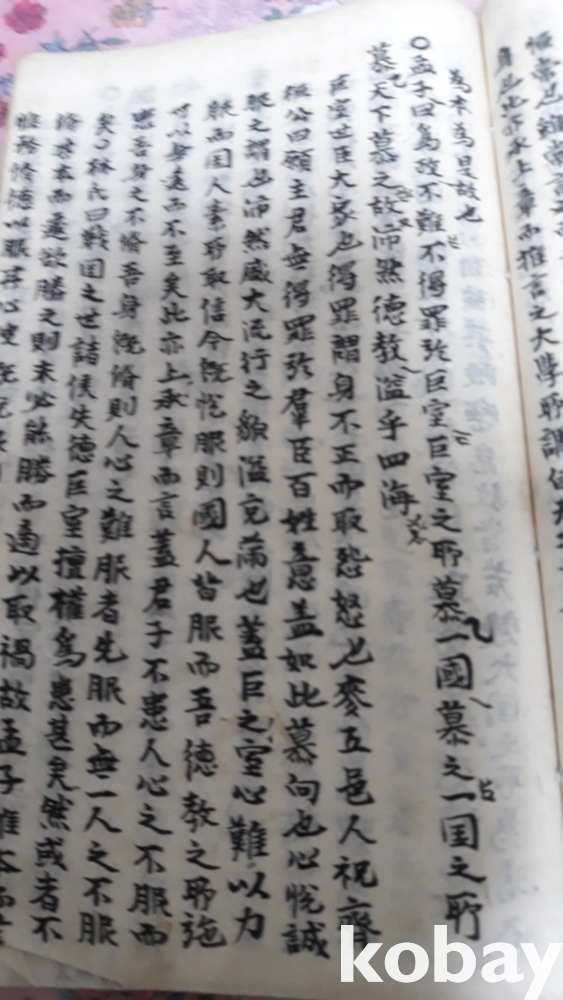 恒常也雖常言之
身也此亦承上章而推言之大學所謂自天子
爲本爲是故也
○孟子曰爲政不難不得罪於巨室巨室之所慕一國慕之一国之所
慕天下慕之故沛然德教溢乎四海
巨室世臣大家也得罪謂身不正而取怨怒也麥丘邑人祝齊
桓公曰願主君無得罪於羣臣百姓意盖如此慕向也心悅誠
服之謂也沛然盛大流行之貌溢充滿也蓋巨之室心難以力
服而国人素所取信今旣悅服則國人皆服而吾德教之所施
可以無遠而不至矣此亦上承章而言蓋君子不患人心之不服而
患吾身之不脩吾身旣脩則人心之難服者先服而無一人之不服
矣○林氏曰戰国之世諸侯失德巨室擅權爲患甚矣然或者不
脩其本而遽欲勝之則未必能勝而適以取禍故孟子推本而言
惟務脩德以服其心彼旣悅
kobay